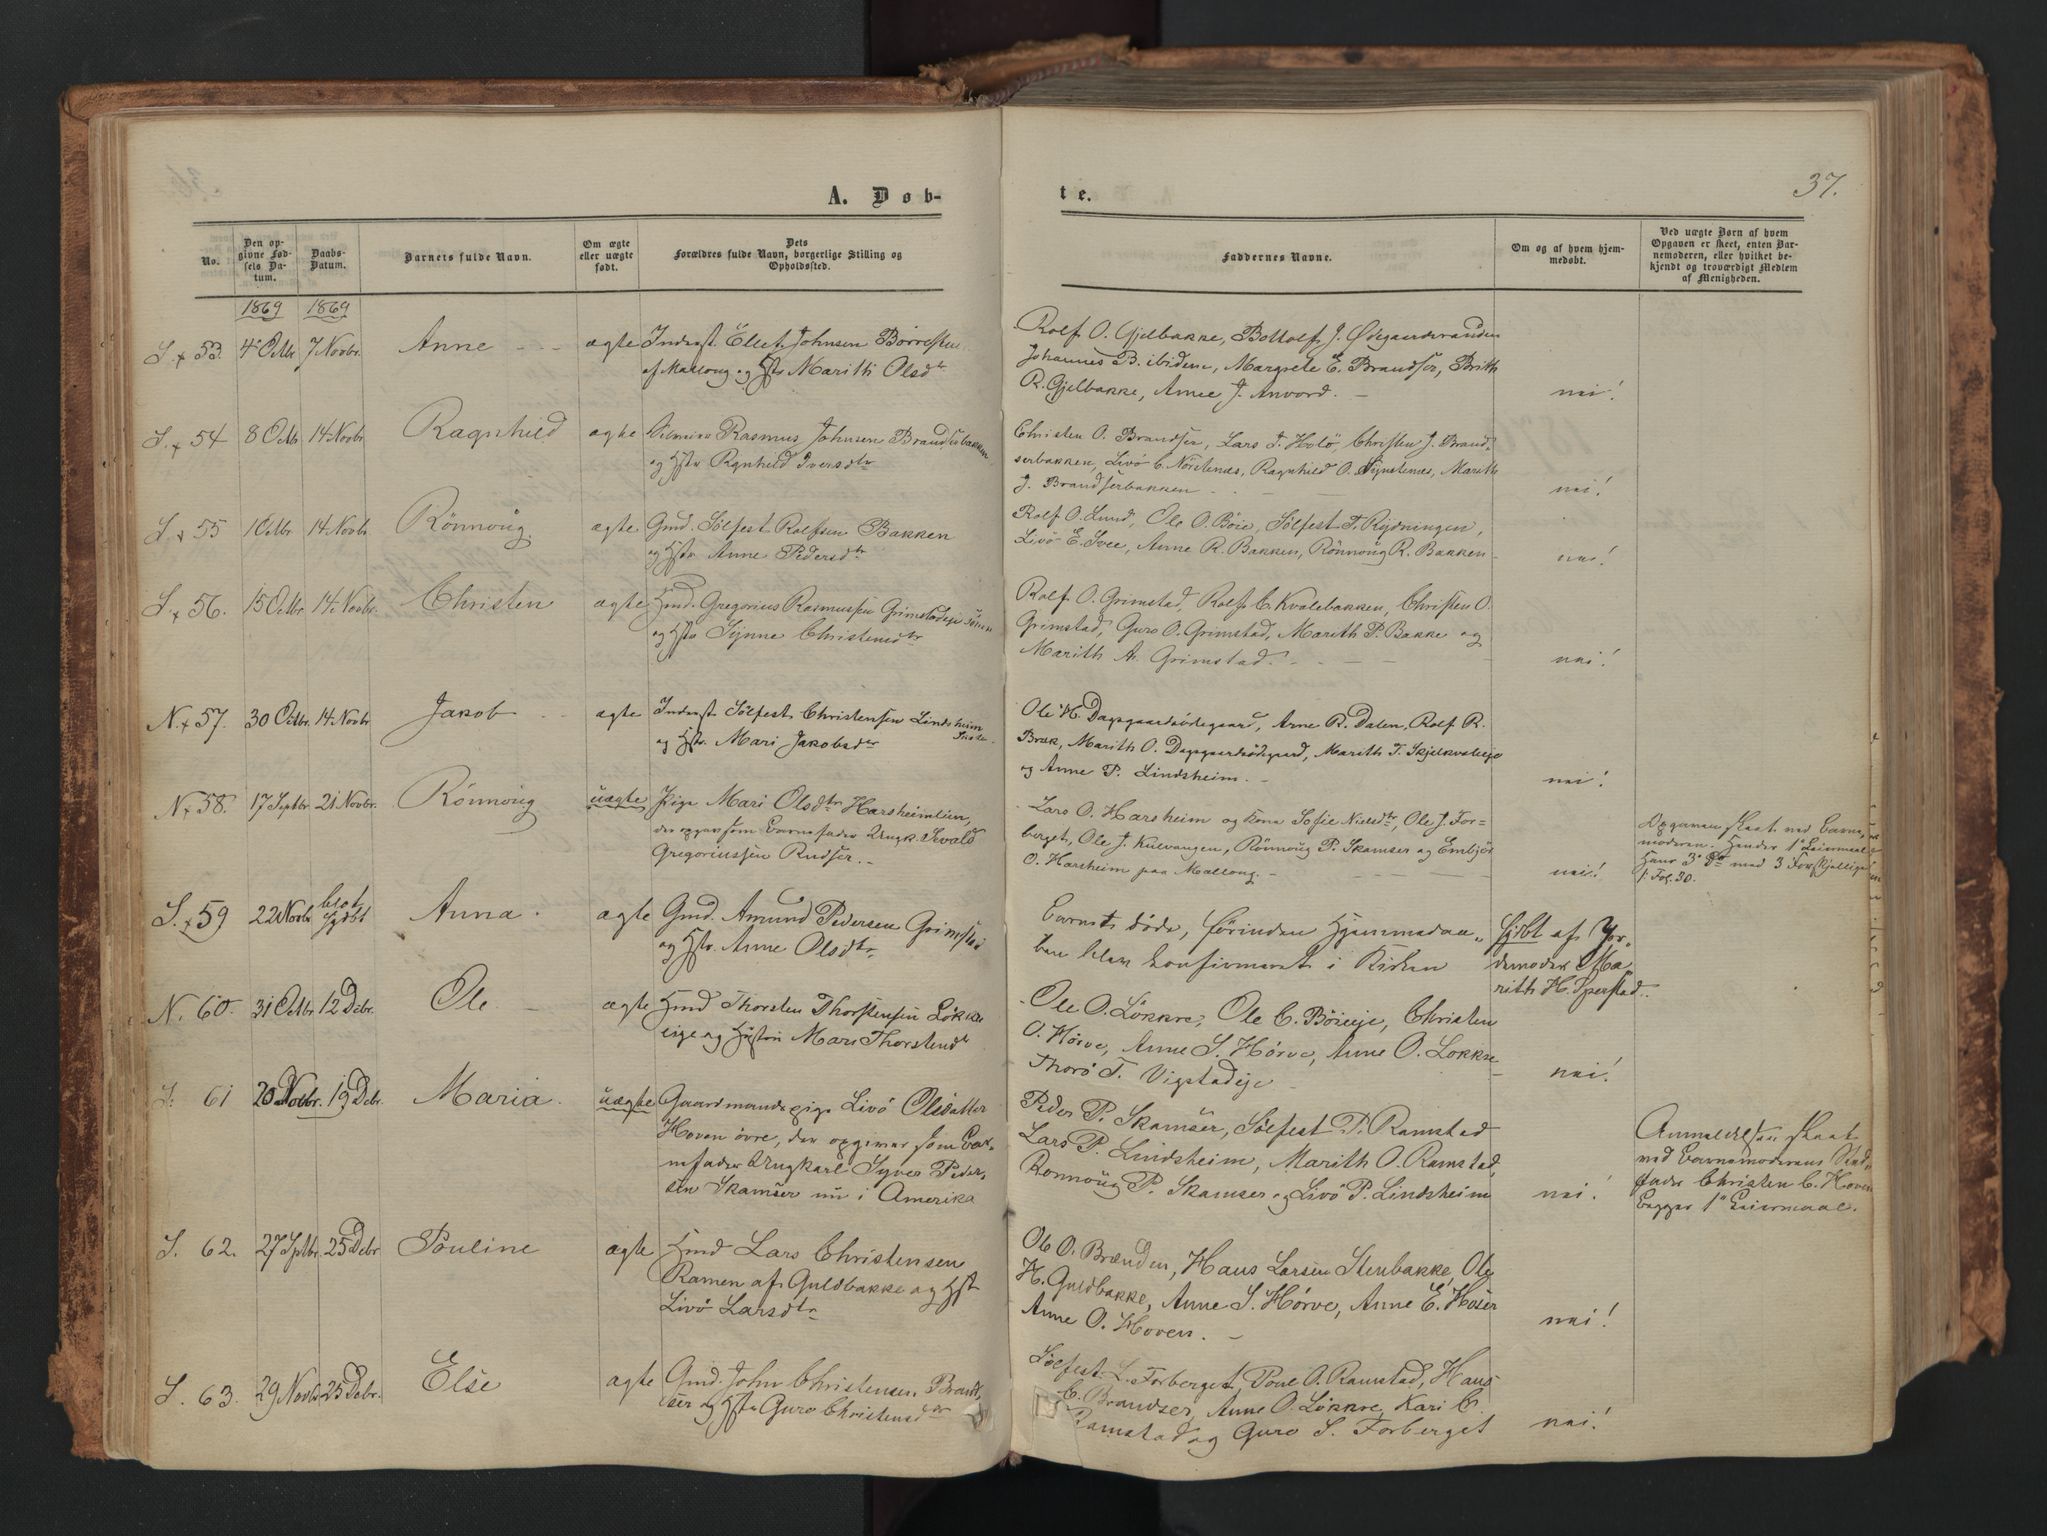 A. Døb-
te.
37.
No.
Den op-
givne Fød-
sels Da-
tum.
Daabs-
Datum.
Barnets fulde Navn.
Om ægte
eller uægte
født.
Dets
Forældres fulde Navn, borgerlige Stilling og
Opholdssted.
Faddernes Navne.
Om og af hvem hjem-
medøbt.
Ved uægte Børn af hvem
Opgaven er skeet, enten Bar-
nemoderen, eller hvilket be-
kjendt og troværdigt Medlem
af Menigheden.
1869 1869
S. + 53. 4 Octbr. 7 Novbr. Anne ægte Inderst Ellef Johnsen Börresten
af Mællong og Hstr Marith Olsdtr
Rolf O. Gjelbakke, Bottolf J. Ødegaardsranden
Johannes B. ibidem, Margrete E. Brandser, Brith
R. Gjelbakke, Anne J. Anvord. nei!
S. + 54 8 Octb 14 Novbr Ragnhild ægte Rasmus Johnsen Brandserbakken
og Hstr Ragnhild Iversdtr
Christen O. Brandser, Lars T. Holö, Christen J. Brand-
serbakken, Livö C. Nörstenæs, Ragnhild O. Synstenæs, Marith
J. Brandserbakken nei!
S. + 55 1 Octbr. 14 Novbr. Rönnoüg ægte Gmd. Sölfest Rolfsen Bakken
og Hstr Anne Pedersdtr
Rolf O. Lund, Ole O. Böie, Sölfest T. Rydningen,
Livö E. Svee, Anne R. Bakken, Rönnoüg R. Bakken nei!
S. + 56. 15 Octbr. 14 Novbr. Christen ægte Hmd. Gregorius Rasmussen Grimstadeje
og Hstr Synne Christensdtr
Rolf O. Grimstad, Rolf C. Kvalebakken, Christen O.
Grimstad, Guro O. Grimstad, Marith P. Bakke og
Marith A. Grimstad. nei!
N. + 57. 30 Octbr. 14 Novbr Jakob ægte Inderst Sölfest Christensen Lindsheim
og Hstr. Mari Jakobsdtr
Ole H. Dagsgaardsødegaard, Arne R. Dalen, Rolf R.
Bræk, Marith O. Dagsgaardsødegaard, Marith T. Skjelkvaleje
og Anne P. Lindsheim. nei!
N + 58. 17 Septbr. 21 Novbr. Rönnoüg uægte Pige Mari Olsdtr Harsheimlien,
der opgav som Barnefader Ungk. Sivald
Gregoriussen Rudser.
Lars O. Harsheim og Kona Sofie Nielsdtr, Ole J. For-
berget, Ole J. Kulvangen, Rönnoüg P. Skamser og Embjör
O. Harsheim paa Mællong. nei!
Opgaven skeet ved Barne-
moderen. Hendes 1ste Leiermaal
Hans 3die med 3 forskjellige
f. Fol. 30.
S. + 59 22 Novbr blot hjdbt Anna. ægte Gmd. Amund Pedersen Grimstad
og Hstr. Anne Olsdtr.
Barnet döde, förinden Hjemmedaa-
ben blev konfirmeret i Kirken
Hjdbt af Jor-
demoder Ma-
rith H. Sperstad.
N. 60. 31 Octbr 12 Debr. Ole ægte Hmd Thorsten Thorstensen Løkke
eige og Hustru Mari Thorstensdtr
Ole O. Løkkre, Ole C. Böieeje, Christen
O. Hörve, Anne S. Hörve, Anne O. Løkkre
Thorö T. Vigstadeje nei!
S. 61 20 Novbr. 19 Debr. Maria. uægte Gaardmandspige Livö Olsdatter
Hoven øvre, der opgiver som Bar-
nefader Ungkarl Syver Peder-
sen Skamser nu i Amerika
Peder P. Skamser, Sölfest P. Ramstad
Lars P. Lindsheim, Marith O. Ramstad,
Ronnoüg P. Skamser og Livö P. Lindsheim nei!
Anmeldelsen skeet
ved Barnemoderens Sted-
fader Christen C. Hoven
Begges 1ste Leiermaal.
S. 62. 27 Sptbr. 25 Debr Pouline ægte Hmd Lars Christensen
Ramen af Guldbakke og Hst
Livö Larsdtr
Ole O. Brænden, Hans Larsen Stenbakke, Ole
H. Guldbakke, Anne S. Hörve, Anne E. Hoser
Anne O. Hoven. nei!
S. 63. 29 Novbr 25 Debr. Else ægte Gmd. John Christensen Brand-
ser og Hstr Guro Christensdtr
Sölfest L. Forberget, Poul O. Ramstad, Hans
C. Brandser, Anne O. Løkkre, Kari C.
Ramstad og Guro S. Forberget nei!